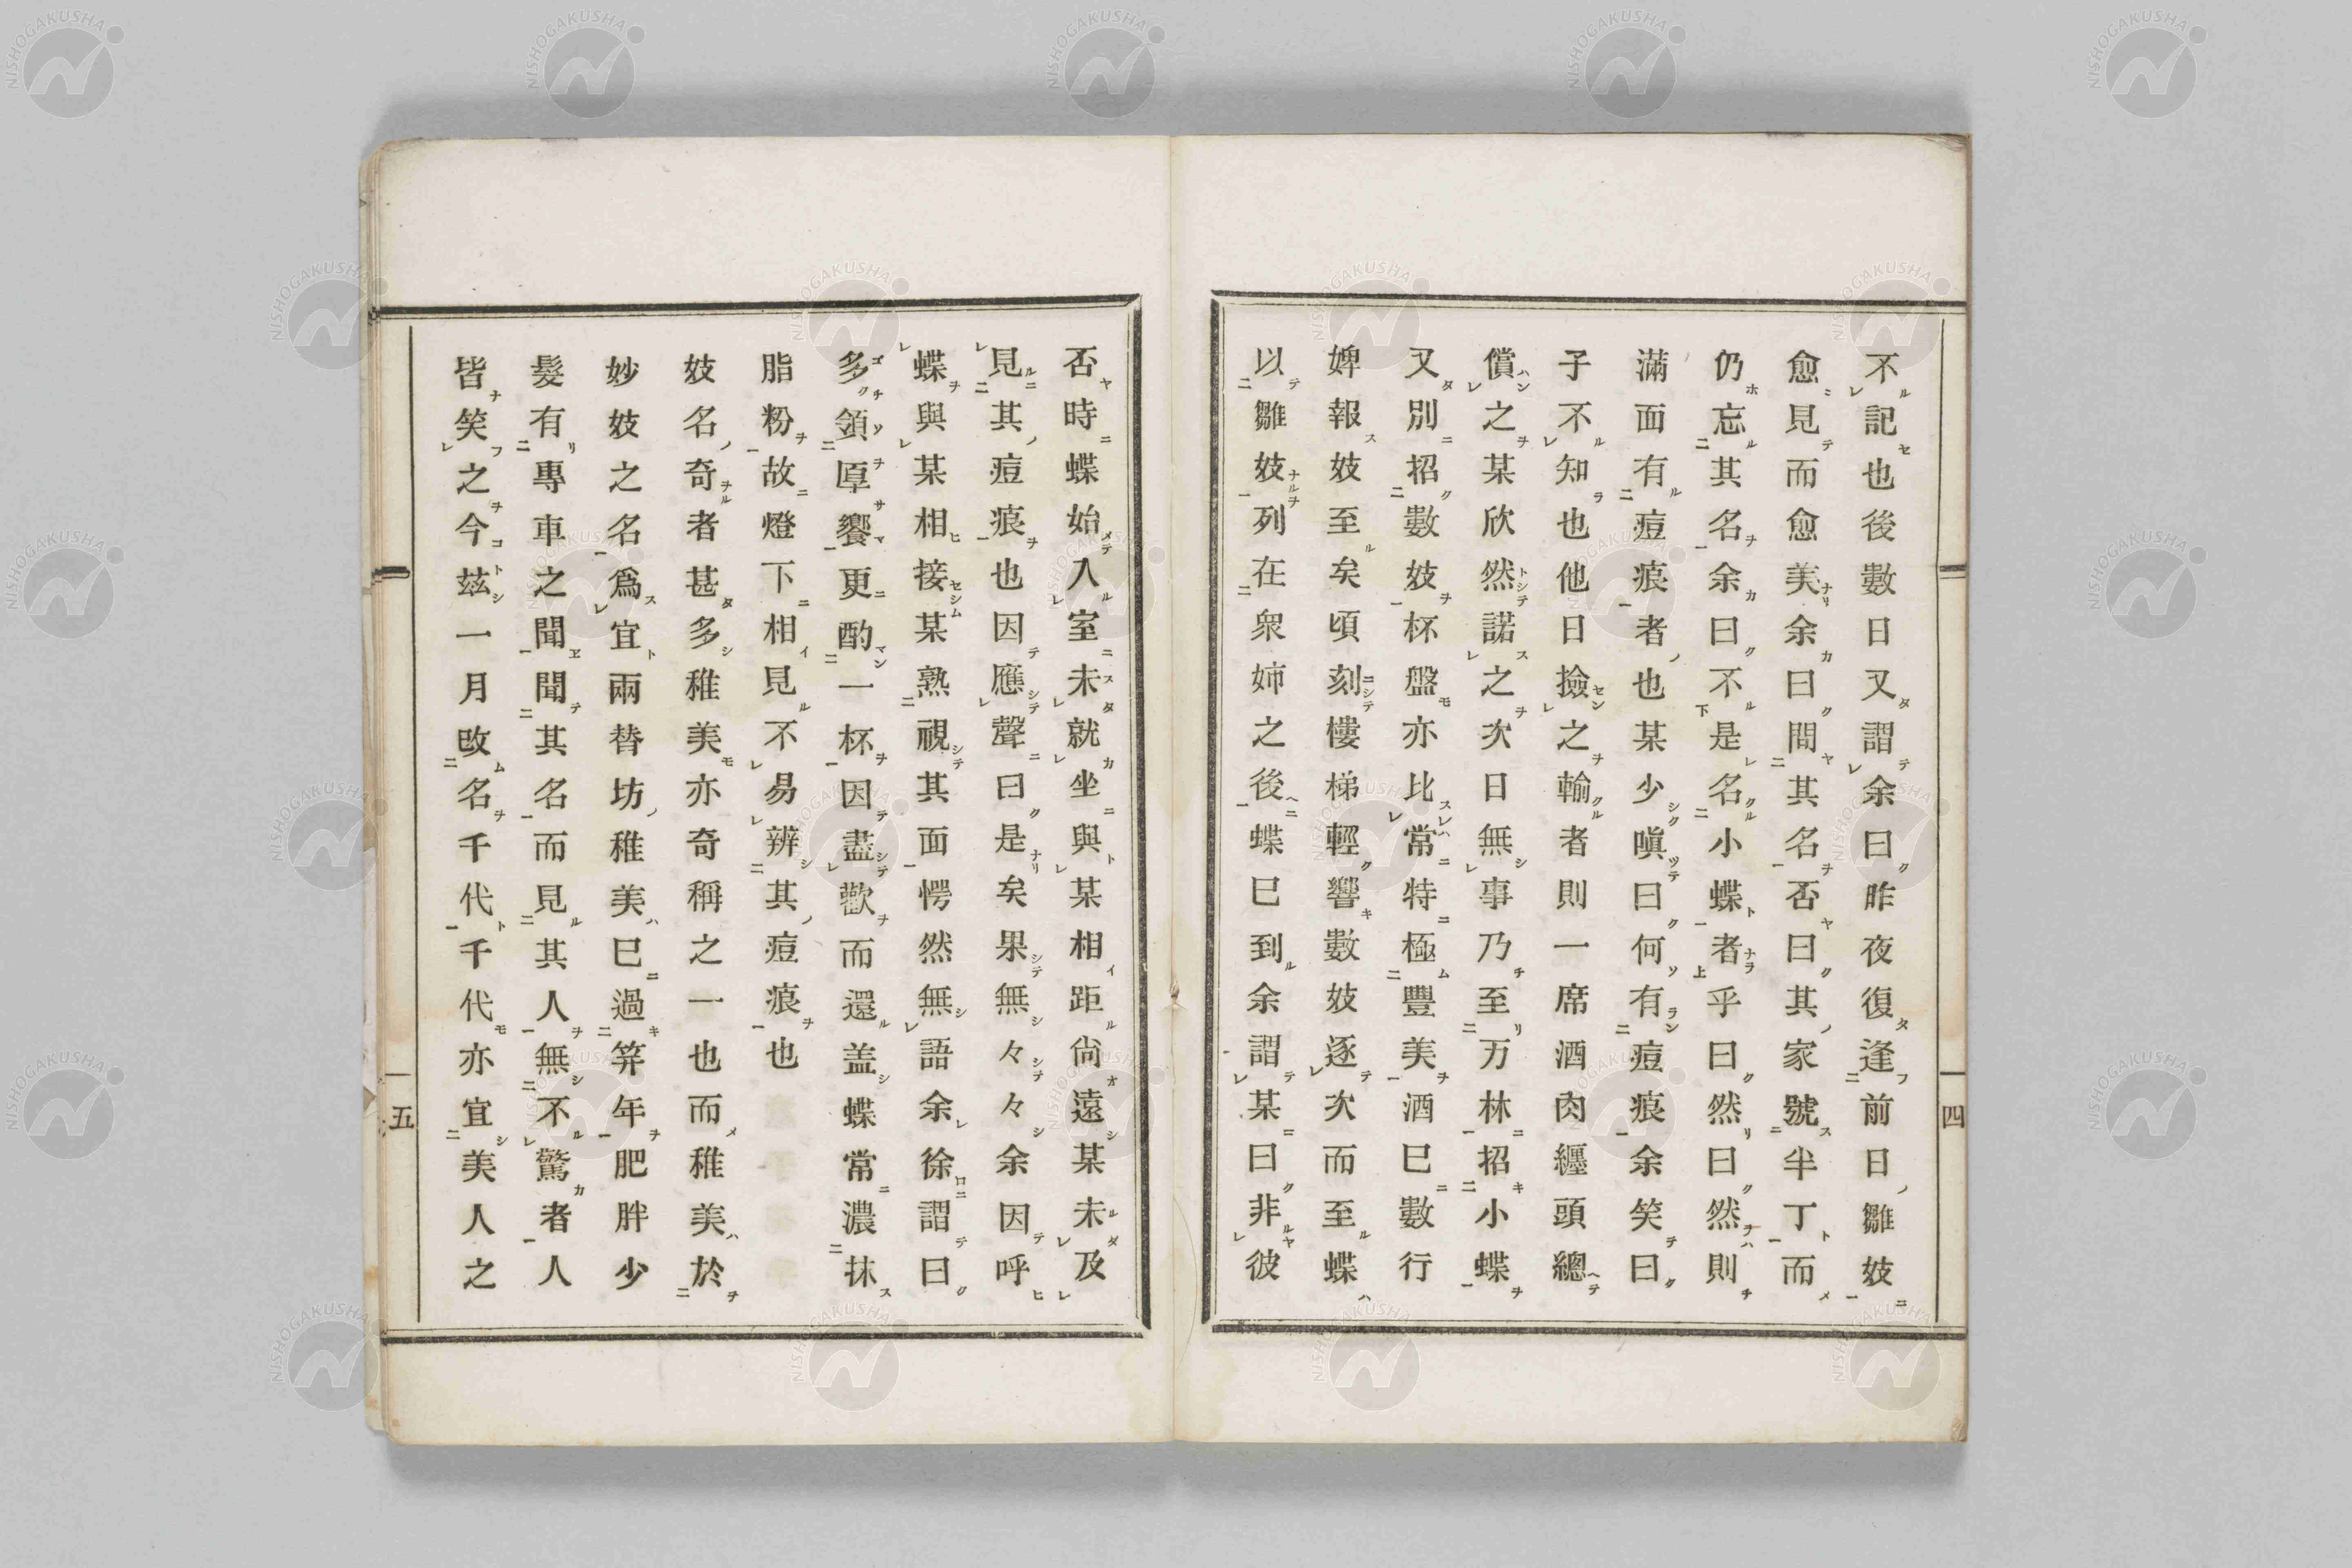 不記也後數日又謂余曰昨夜復逢前日雛妓
愈見而愈美余曰問其名否曰其家號半丁而
仍忘其名余曰不是名小蝶者乎曰然曰然則
滿面有痘痕者也某少嗔曰何有痘痕余笑曰
子不知也他日撿之輸者則一席酒肉纒頭總
償之某欣然諾之次日無事乃至万林招小蝶
又別招數妓杯盤亦比常特極豐美酒巳數行
婢報妓至矣頃刻樓梯輕響數妓逐次而至蝶
以雛妓列在衆姉之後蝶巳到余謂某曰非彼
四
否時蝶始入室未就坐與某相距尙遠某未及
見其痘痕也因應聲曰是矣果無々々余因呼
蝶與某相接某熟視其面愕然無語余徐謂曰
多領厚饗更酌一杯因盡歡而還盖蝶常濃抹
脂粉故燈下相見不易辨其痘痕也
妓名奇者甚多稚美亦奇稱之一也而稚美於
妙妓之名爲宜兩替坊稚美巳過笄年肥胖少
髮有專車之聞聞其名而見其人無不驚者人
皆笑之今玆一月改名千代千代亦宜美人之
五
NISHOGAKUSHA